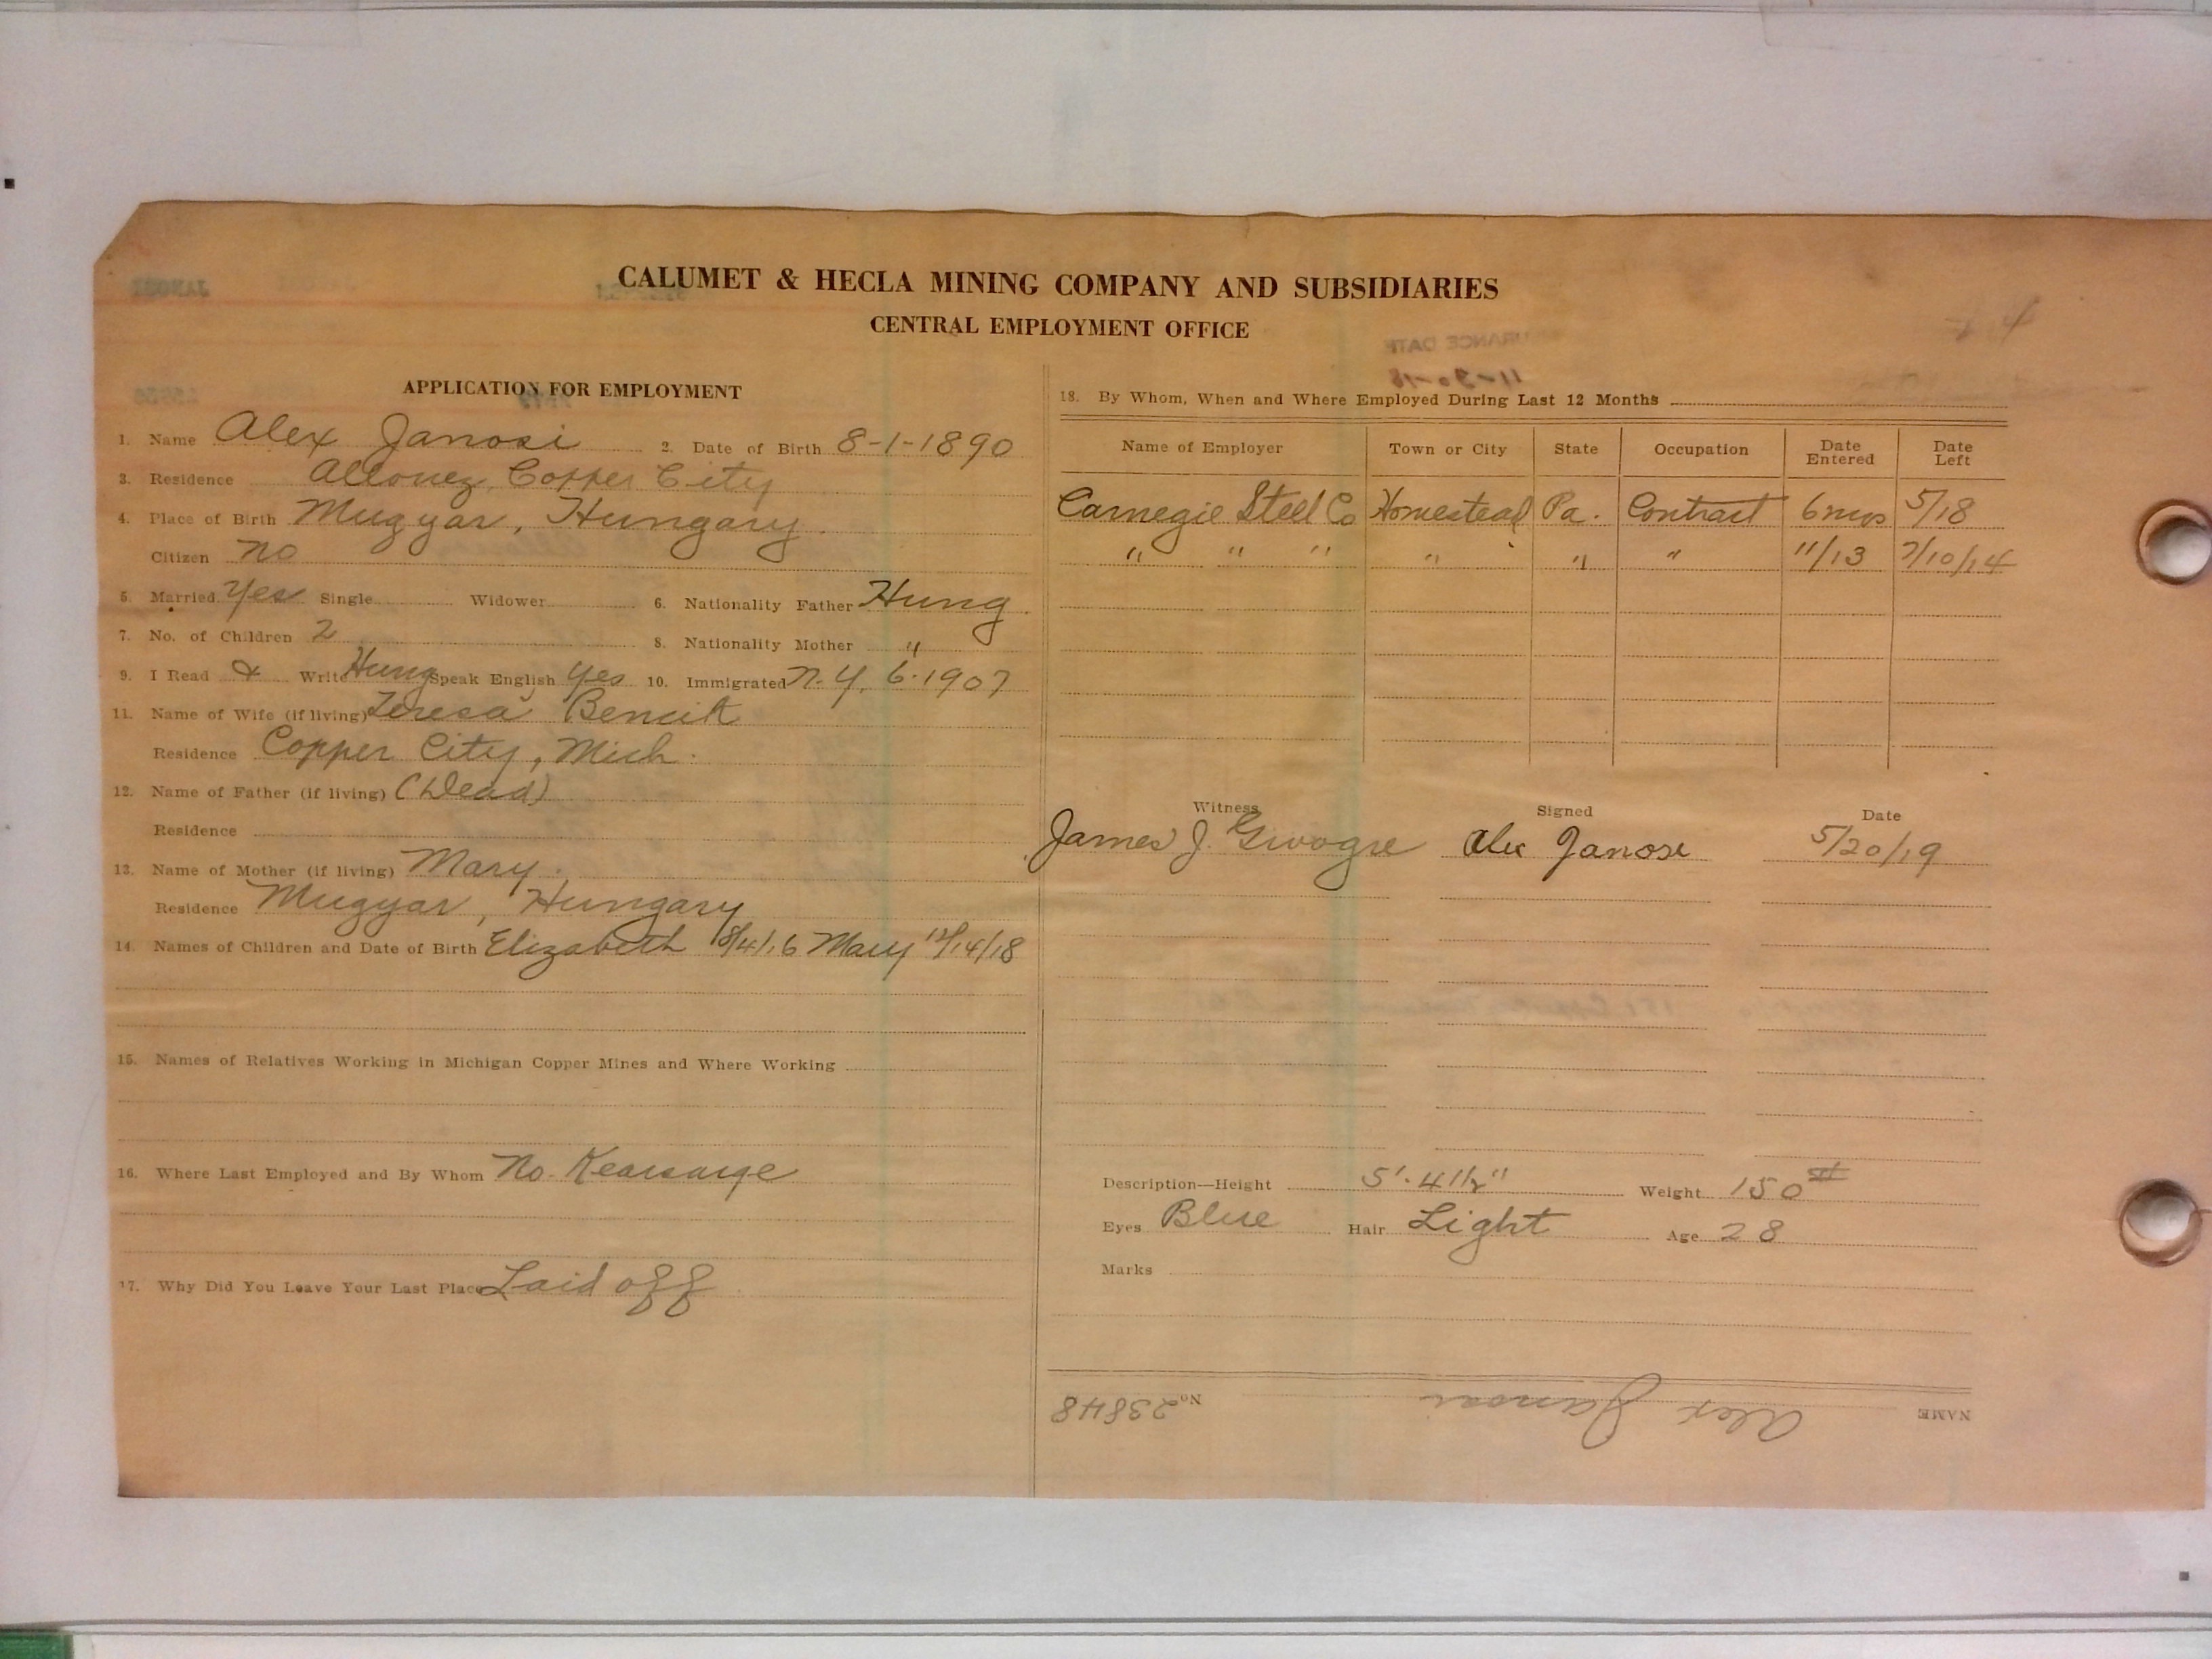 CALUMET & HECLA MINING COMPANY AND SUBSIDIARIES
CENTRAL EMPLOYMENT OFFICE
APPLICATION FOR EMPLOYMENT
1. Name Alex Janosi 2. Date of Birth 8-1-1890
3. Residence Allouez, Copper City
4. Place of Birth Mugyar, Hungary.
Citizen no
5. Married Yes Single Widower 6. Nationality Father Hung.
7. No. of Children 2 8. Nationality Mother "
9. I Read & Write Hung Speak English yes 10. Immigrated N.Y. 6.1907
11. Name of Wife (if living) Teresa
Residence Copper City, Mich.
12. Name of Father (if living) (Dead)
Residence
13. Name of Mother (if living) Mary.
Residence Mugyar, Hungary
14. Names of Children and Date of Birth Elizabeth Mary 12/14/18
15. Names of Relatives Working in Michigan Copper Mines and Where Working
16. Where Last Employed and By Whom No. Kearsarge
17. Why Did You Leave Your Last Place Laid off
18. By Whom, When and Where Employed During Last 12 Months
Name of Employer Town or City State Occupation Date Entered Date Left
Carnegie Steel Co Homestead Pa. Contract 6 mos 5/18
" " " " " " 11/13 7/10/14
Witness Signed Date
James J. Alex Janosi 5/20/19
Description—Height 5'.4 1/2" Weight 150 #
Eyes Blue Hair Light Age 28
Marks
NAME Alex Janosi No. 23848